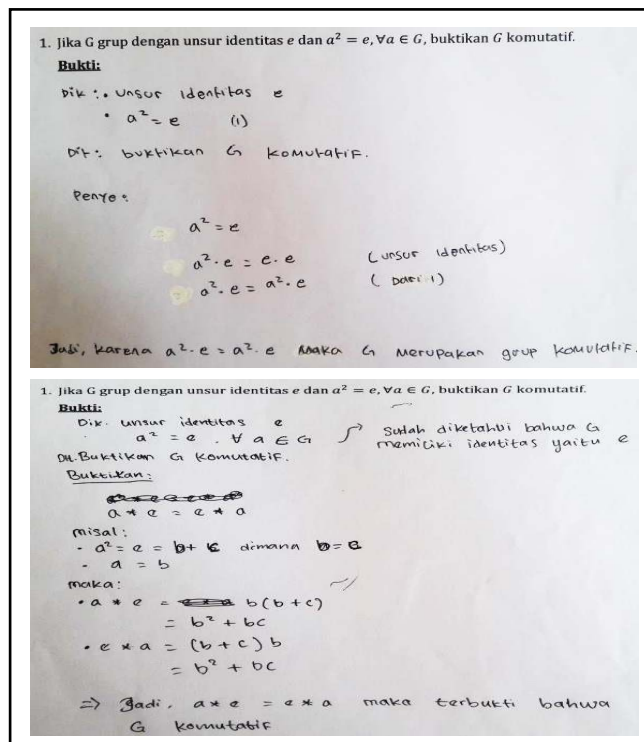 1. Jika G grup dengan unsur identitas e dan a² = e, ∀a ∈ G, buktikan G komutatif.
Bukti:
Dik : • Unsur Identitas e
• a² = e (1)
Dit : buktikan G komutatif.
Penye :
= a² = e
= a² . e = e . e (unsur identitas)
= a² . e = a² . e (Dari 1)
Jadi, karena a² . e = a² . e maka G merupakan grup komutatif.
1. Jika G grup dengan unsur identitas e dan a² = e, ∀a ∈ G, buktikan G komutatif.
Bukti:
Dik. unsur identitas e
a² = e . ∀ a ∈ G
Sudah diketahui bahwa G
memiliki identitas yaitu e
Dit. Buktikan G komutatif.
Buktikan :
a * e = e * a
misal :
- a² = e = b + c dimana b =
- a = b
maka :
• a * e = b (b + c)
= b² + bc
• e * a = (b + c) b
= b² + bc
=> Jadi, a * e = e * a maka terbukti bahwa
G komutatif